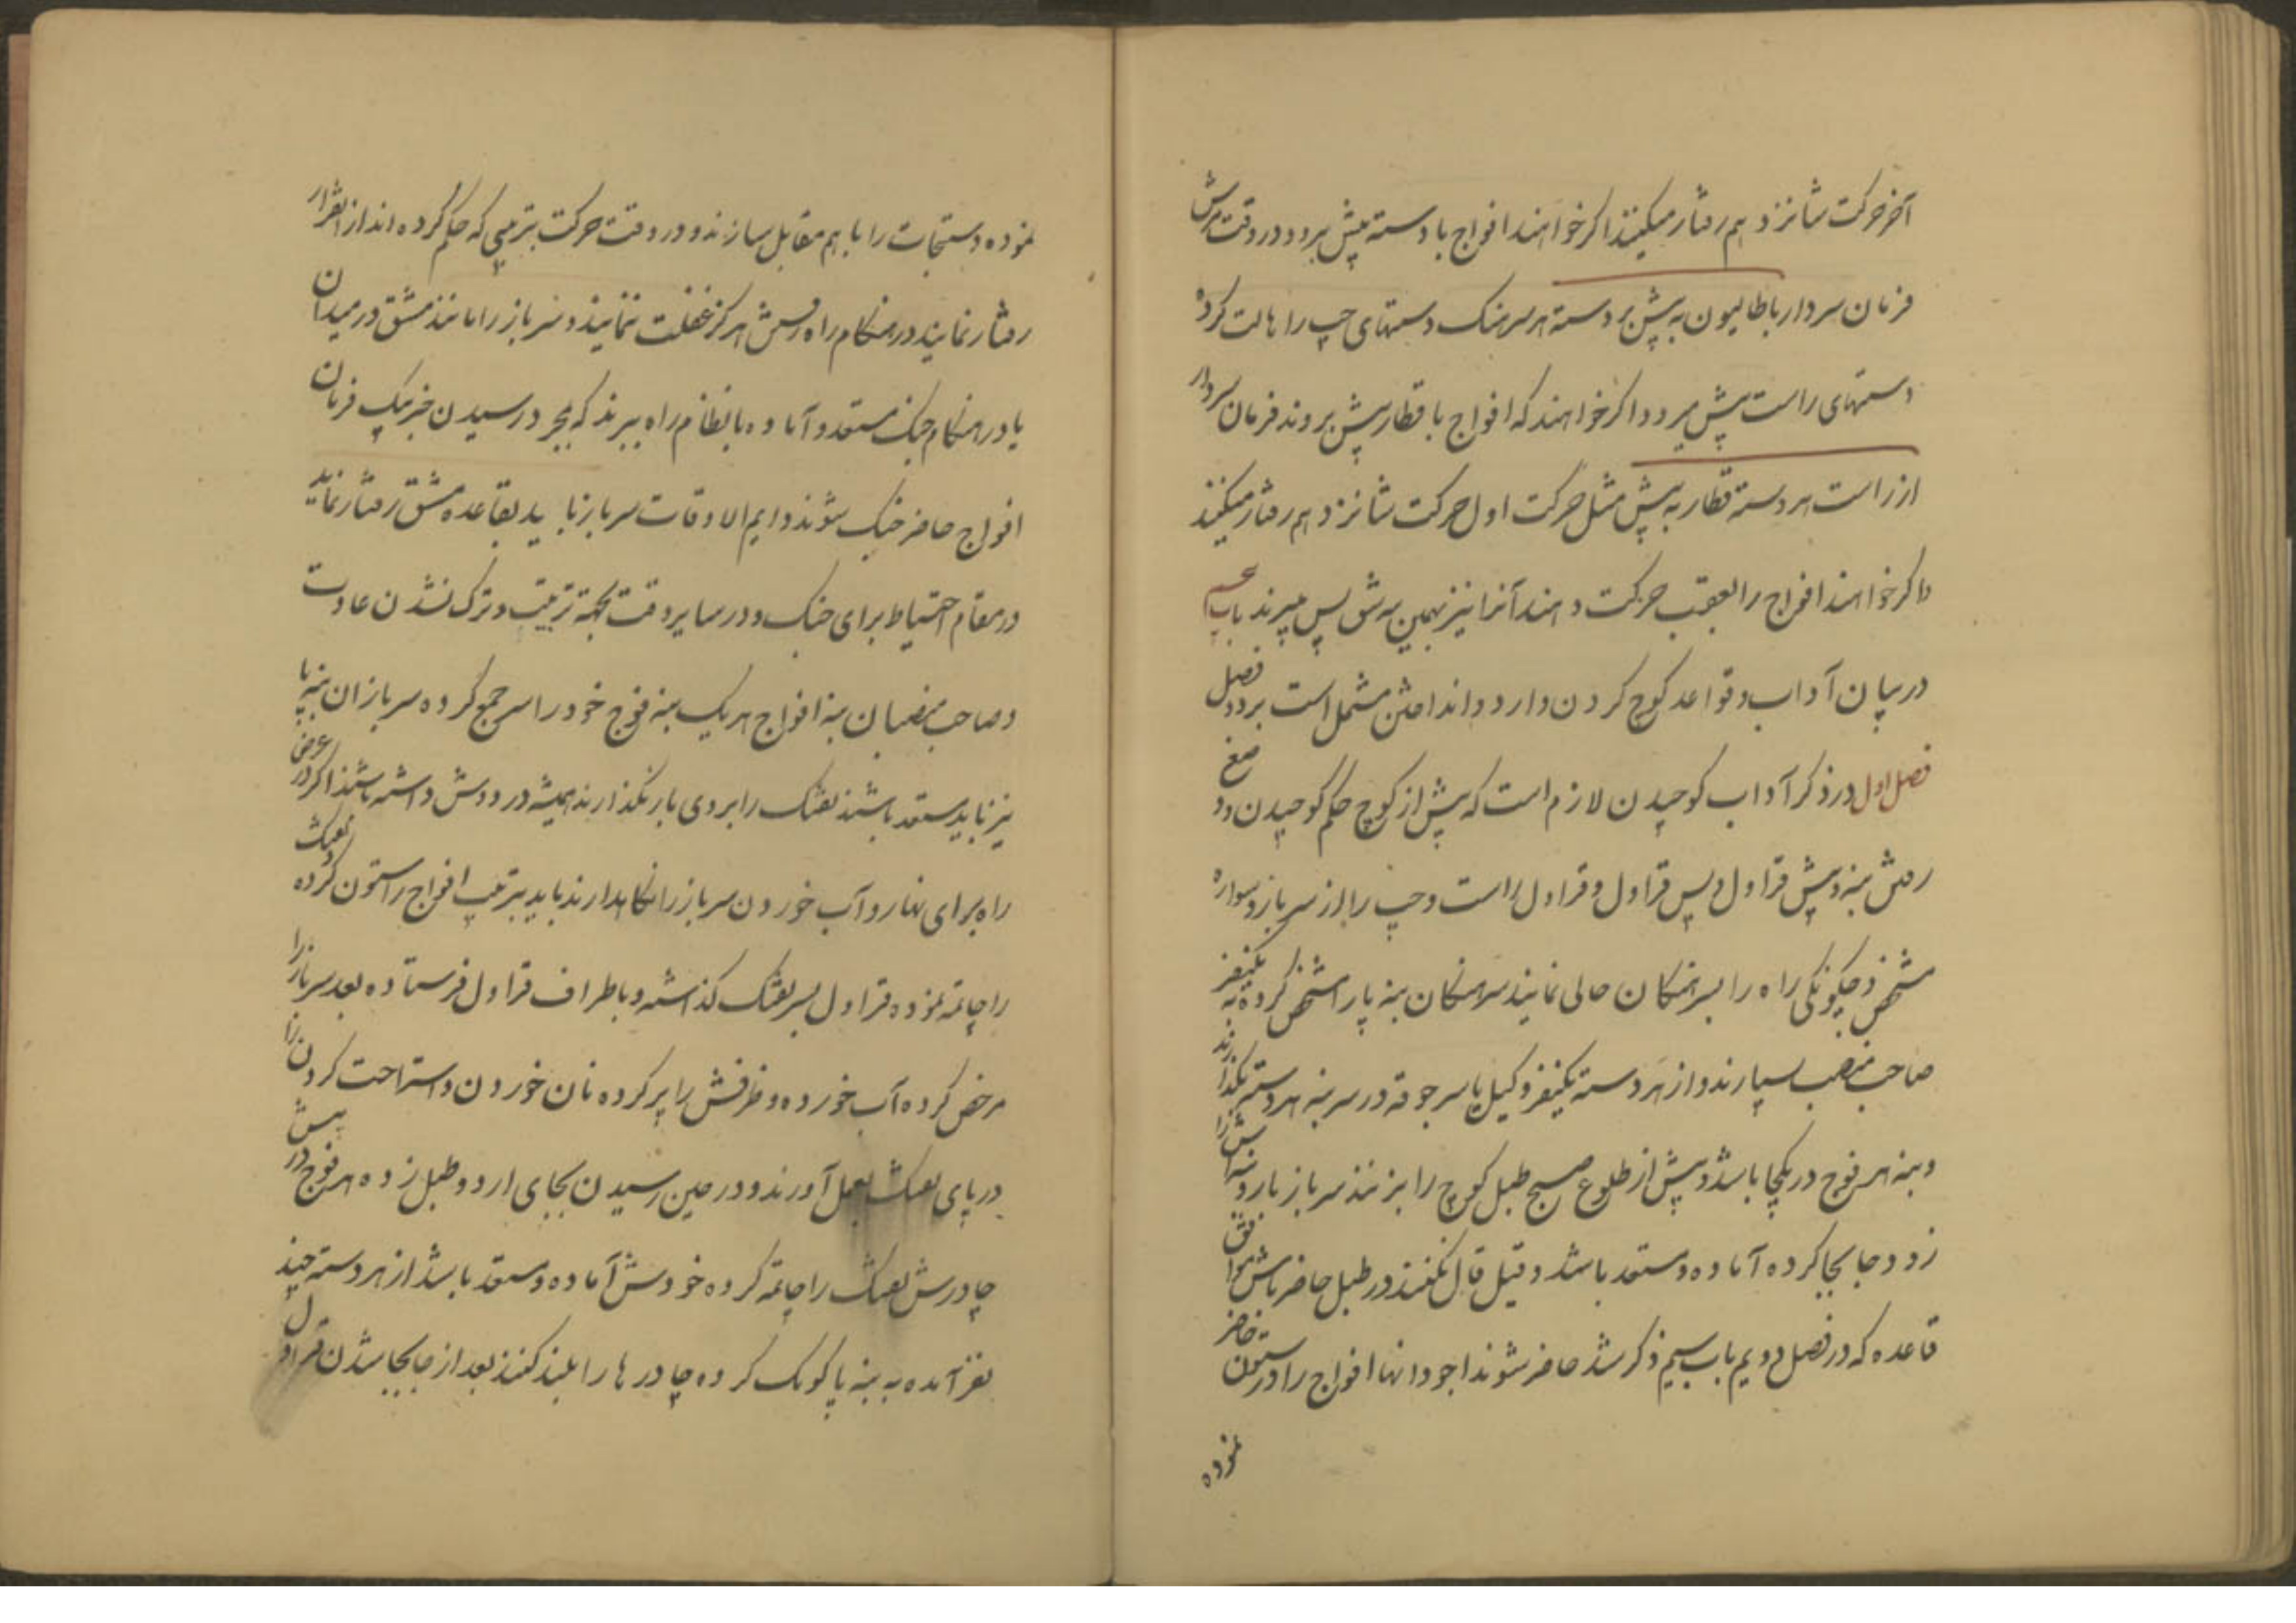 آخر حرکت شانزدهم رفتار میکنند اکر خواهند افواج با دسته پیش برود در وقت یرش
فرمان سردار باطالیون به پیش بر دسته هر سرهنک دستهای چپ را هالت کرده
دستهای راست پیش میرود و اکر خواهند که افواج با قطار پیش بروند فرمان سردار
از راست هر دسته قطار به پیش مثل حرکت اول حرکت شانزدهم رفتار میکنند
و اکر خواهند افواج را بعقب حرکت دهند آنرا نیز بهمین مشق پس میبرند باب
در بیان آداب و قواعد کوچ کردن و اردو انداختن مشتمل است بر دو فصل
فصل اول در ذکر آداب کوچیدن لازم است که پیش از کوچ حکم کوچیدن و وضع
رفتن بنه و پیش قراول و پس قراول و قراول راست و چپ را از سرباز و سواره
مشخص و چکونکی راه را بسرهنکان حالی نمایند سرهنکان بنه پا را مشخص کرده به یکنفر
صاحب منصب سپارند و از هر دسته یکنفر وکیل یا سر جوقه در سر بنه هر دسته بکذارند
و بنه هر فوج در یکجا باشد و پیش از طلوع صبح طبل کوچ را بزنند سرباز بار و بنه اش را
زود جابجا کرده آماده و مستعد باشد و قیل قال نکنند در طبل حاضر باش موافق
قاعده که در فصل دویم باب سیم ذکر شد حاضر شوند اجودانها افواج را در ستون حاضر
نموده
نموده دستجات را با هم مقابل سازند و در وقت حرکت بترتیبی که حکم کرده اند از آنقرار
رفتار نمایند در هنکام راه رفتن هرکز غفلت ننمایند و سرباز را مانند مشق در میدان
یا در هنکام جنک مستعد و آماده با نظام راه ببرند که بمجرد رسیدن خبر بیک فرمان
افواج حاضر جنک شوند دایم الاوقات سرباز باید بقاعده مشق رفتار نماید
در مقام احتیاط برای جنک و در سایر وقت بجهة تربیت و ترک نشدن عادت
و صاحب منصبان بنه افواج هر یک بنه فوج خود را سر جمع کرده سربازان بنه پا
نیز باید مستعد باشند تفنک را بر روی بار نکذارند همیشه در دوش داشته باشند اکر در عرض
راه برای نهار و آب خوردن سرباز را نکاهدارند باید بترتیب افواج را ستون کرده تفنک
را چاتمه نموده قراول بسر تفنک کذاشته و باطراف قراول فرستاده بعد سرباز را
مرخص کرده آب خورده و ظرفش را پر کرده نان خوردن و استراحت کردن را
در پای تفنک بعمل آورند و در حین رسیدن بجای اردو طبل زده هر فوج در پیش
چادرش تفنک را چاتمه کرده خودش آماده و مستعد باشد از هر دسته چند
نفر آمده به بنه پا کومک کرده چادرها را بلند کنند بعد از جابجا شدن قراول